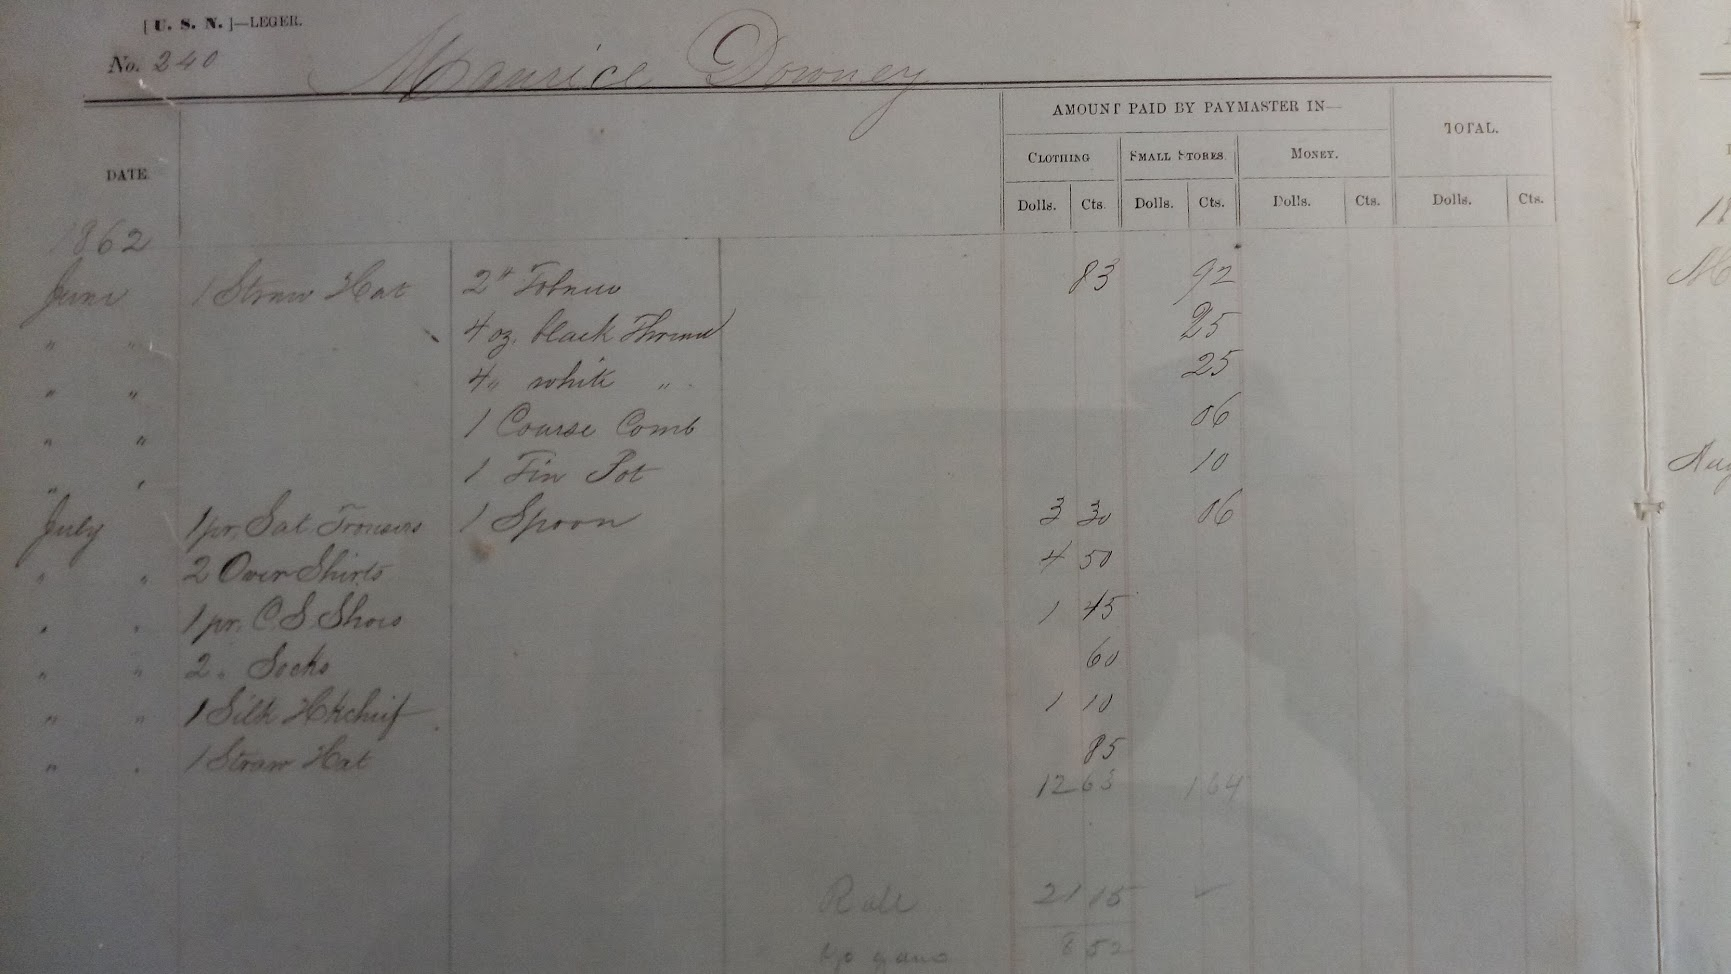 [U. S. N.]—LEGER.
No. 240 Maurice Downey
AMOUNT PAID BY PAYMASTER IN—
TOTAL.
DATE.
CLOTHING SMALL STORES. MONEY.
Dolls. Cts. Dolls. Cts. Dolls. Cts. Dolls. Cts.
1862
June 1 Straw Hat 2 " Tobacco 83 92
" " 4 oz. black Thread 25
" " 4 " white " 25
" " 1 Course Comb 06
" " 1 Tin Pot 10
July 1 pr. Sat Trousers 1 Spoon 3 30 06
" " 2 Over Shirts 4 50
" " 1 pr. C S Shoes 1 45
" " 2 " Socks 60
" " 1 Silk Hkchief 1 10
" " 1 Straw Hat 85
12 63 1 64
Roll 21 15
8 52